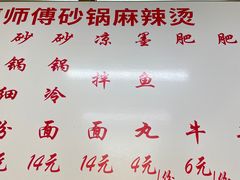 师傅砂锅麻辣烫
砂锅细粉
砂锅冷面 14元
凉拌面 14元
墨鱼丸 4元/份
肥牛 6元/份
肥